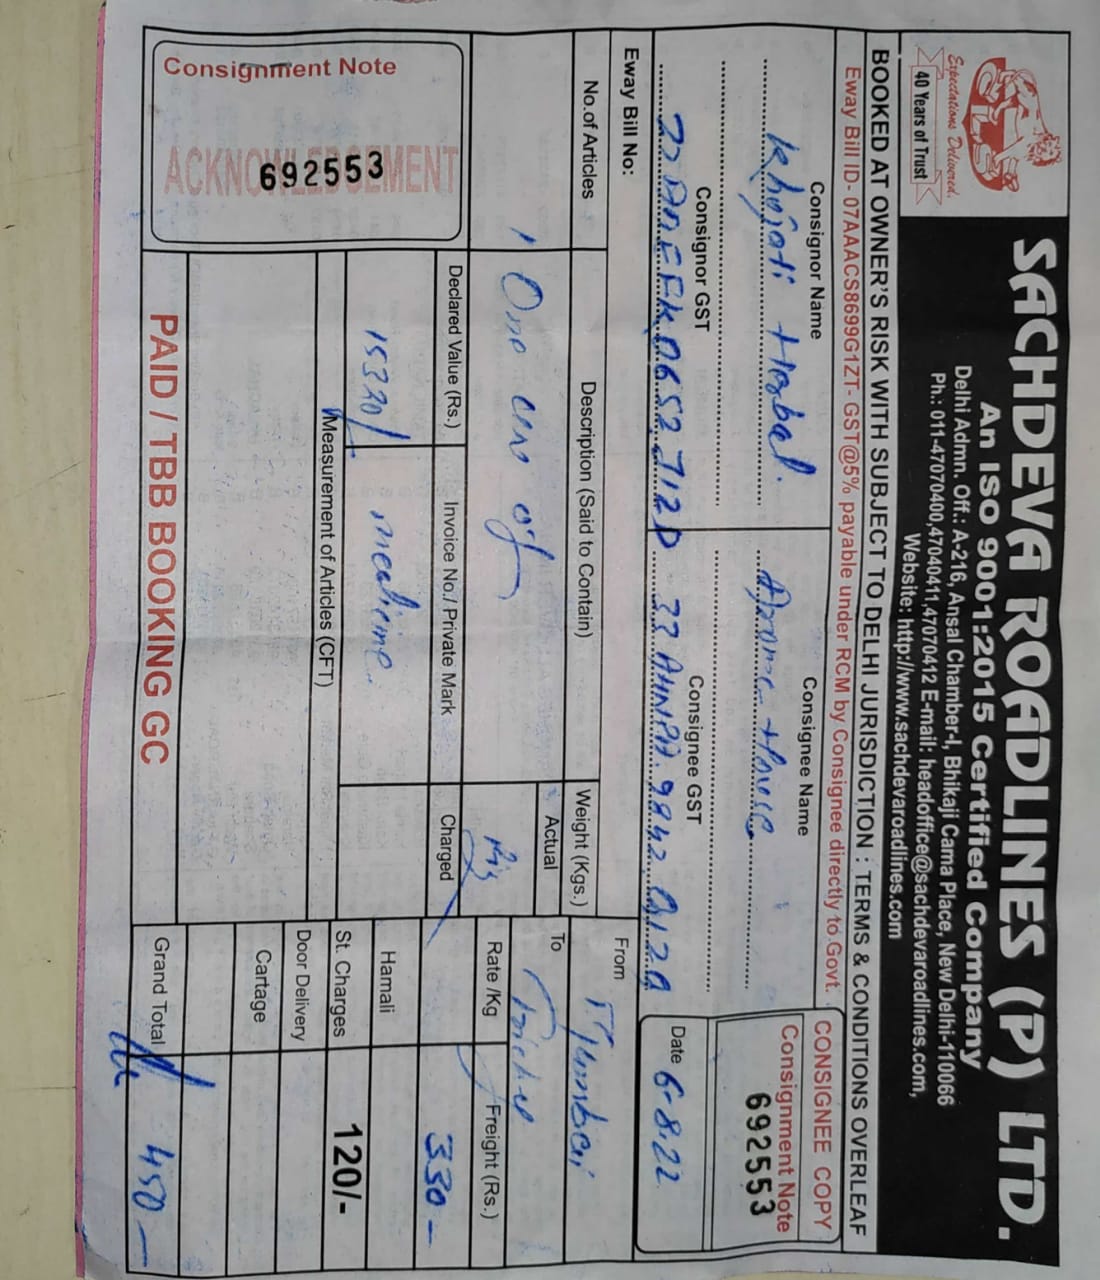 Expectations Delivered.
40 Years of Trust
SACHDEVA ROADLINES (P) LTD.
An ISO 9001:2015 Certified Company
Delhi Admn. Off.: A-216, Ansal Chamber-I, Bhikaji Cama Place, New Delhi-110066
Ph.: 011-47070400,47040411,47070412 E-mail: headoffice@sachdevaroadlines.com,
Website: http://www.sachdevaroadlines.com
BOOKED AT OWNER'S RISK WITH SUBJECT TO DELHI JURISDICTION : TERMS & CONDITIONS OVERLEAF
Eway Bill ID- 07AAACS8699G1ZT- GST@5% payable under RCM by Consignee directly to Govt.
CONSIGNEE COPY
Consignment Note
692553
Consignor Name
Khojati Herbal.
Consignee Name
Aroma House
Consignor GST
Consignee GST
Date 6-8-22
Eway Bill No:
From
Mumbai
No.of Articles
Description (Said to Contain)
Weight (Kgs.)
Actual
To
1
One
of
Charged
Rate /Kg
Freight (Rs.)
330-
Declared Value (Rs.)
Invoice No./ Private Mark
15320/
medicine
Hamali
St. Charges
120/-
Measurement of Articles (CFT)
Door Delivery
Cartage
Grand Total
450-
Consignment Note
ACKNOWLEDGEMENT
692553
PAID / TBB BOOKING GC